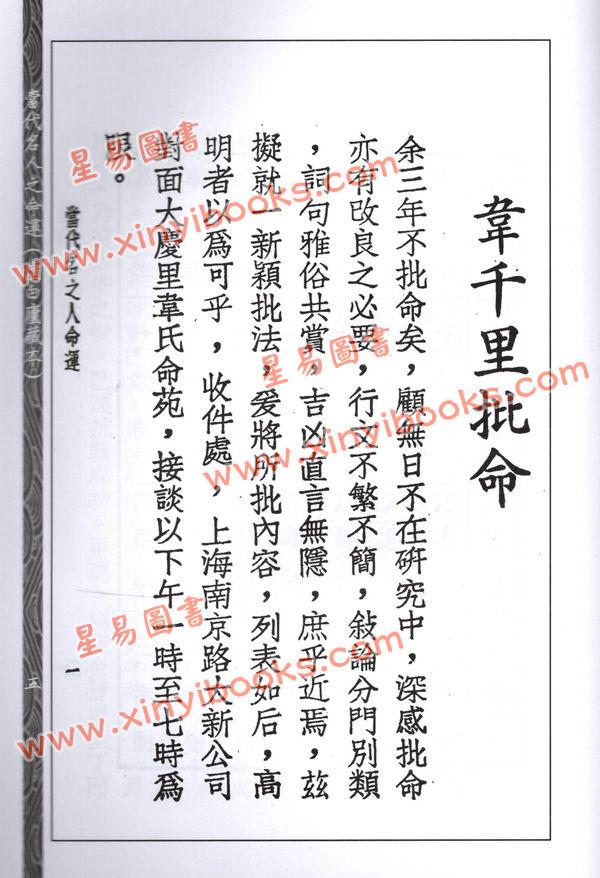 韋千里批命
余三年不批命矣，顧無日不在硏究中，深感批命
亦有改良之必要，行文不繁不簡，敍論分門別類
，詞句雅俗共賞，吉凶直言無隱，庶乎近焉，茲
擬就一新穎批法，爰將所批內容，列表如后，高
明者以爲可乎，收件處，上海南京路大新公司
對面大慶里韋氏命苑，接談以下午一時至七時爲
限。
當代名之人命運
一
當代名人之命運
五
星易圖書
www.xinyibooks.com
星易圖書
www.xinyibooks.com
星易圖書
www.xinyibooks.com